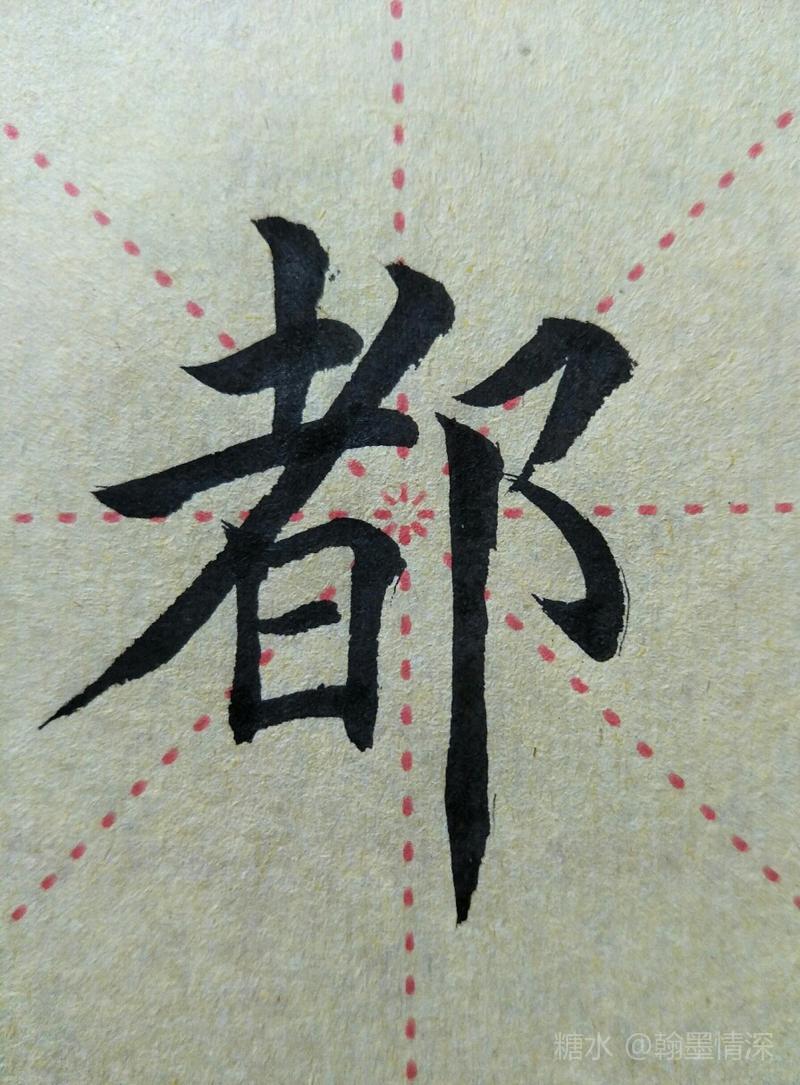 都
糖水 @翰墨情深